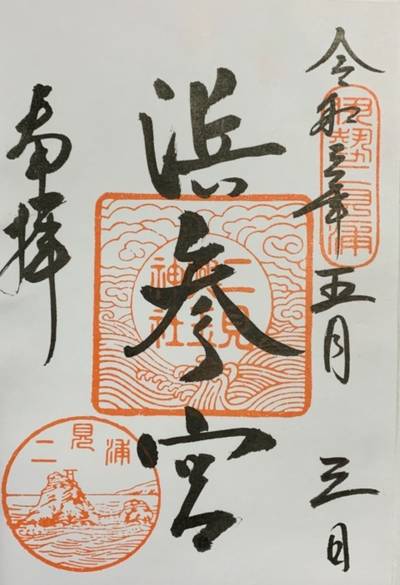 令和三年五月三日
伊勢二見浦
浜参宮
二見
興玉
神社
奉拝
二見浦